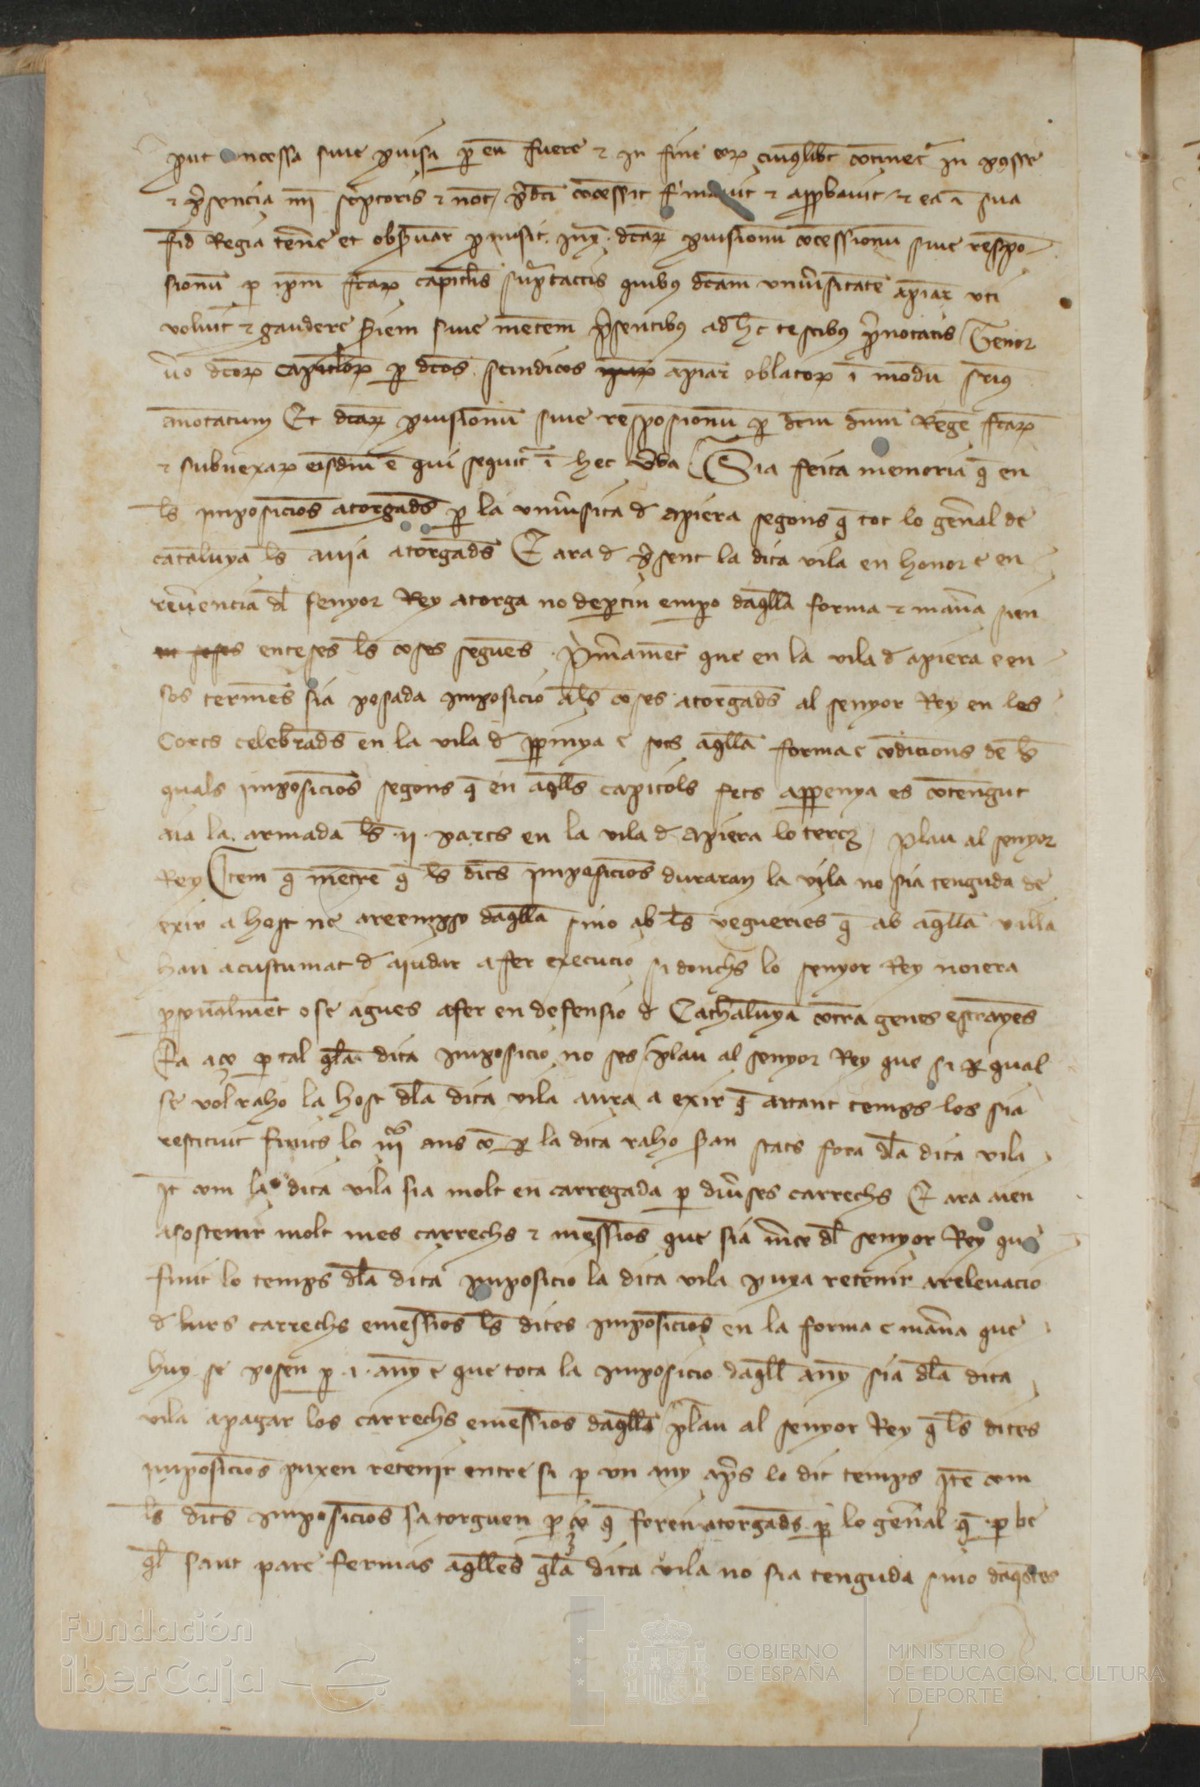 put concessa sive pvisa p eū fuere & in fine eoȝ cuiuslibt cōtinet in posse
& psencia mī scptoris & not pdci cōcessit firmavit & appbavit & ea ī sua
fid Regia tene et obsuar pmisit iux dcaȝ pvisionū cōcessionū sive respo
sionū p ipm fcaȝ capitlis suptactis quibȝ dcam univsitate apiar uti
voluit & gaudere Priem sive metem psentibȝ ad hc testibȝ pnotatis Tenor
vo dcoȝ capitloȝ p dcos sendicos apiar oblatoȝ ī modū seriȝ
anotatum Et dcaȝ pvisionū sive resposionū p dcm dnm Rege fcaȝ
& subnexaȝ eisdm e qui sequit ī hec vba Sia feita memoria q en
ls imposicions atorgads p la univsitat d apiera segons q tot lo genal de
cataluya ls avia atorgads E ara d psent la dita vila en honor e en
revencia dl senyor Rey atorga no depertin empo daqlla forma & mana sien
enteses ls coses seguēs Pmament que en la vila d apiera e en
sos termes sia posada imposicio als coses atorgads al senyor Rey en les
Corts celebrads en la vila d ppinya e sots aqlla forma e cōdicions de ls
quals imposicios segons q en aqlls capitols fets appenya es cōtengut
aia la armada ls .ii. parts en la vila d apiera lo terç plau al senyor
Rey Item q mentre q ls dits imposicios duraran la vila no sia tenguda de
exir a host ne areempso daqlla sino ab ls vegueries q ab aqlla villa
han acustumat d aiudar a fer execucio si donchs lo senyor Rey noiera
psonalmet o se agues afer en defensio d Cathaluya cōtra genes estrayes
E a aço p tal qla dita imposicio no ses plau al senyor Rey que si p qual
se vol raho la host dla dita vila aura a exir q aitant temps los sia
restituit finits lo iii ans cō p la dita raho seran stats fora dla dita vila
It com la dita vila sia molt en carregada p divses carrechs E ara aien
asostenir molt mes carrechs & messios que sia mce dl senyor Rey que
finit lo temps dla dita imposicio la dita vila puxa retenir arelevacio
d lurs carrechs emessios ls dites imposicios en la forma e mana que
huy se posen p .i. any e que tota la imposicio daqll any sia dla dita
vila apagar los carrechs emessios daqlla plau al senyor Rey q ls dites
imposicios puxen retenir entre si p un any aps lo dit temps Ite com
ls dits imposicios satorguen p ço q foren atorgads p lo genal q p be
ql sant pare fermas aqlles qla dita vila no sia tenguda sino daqstes
Fundación
iberCaja
GOBIERNO
DE ESPAÑA
MINISTERIO
DE EDUCACIÓN, CULTURA
Y DEPORTE